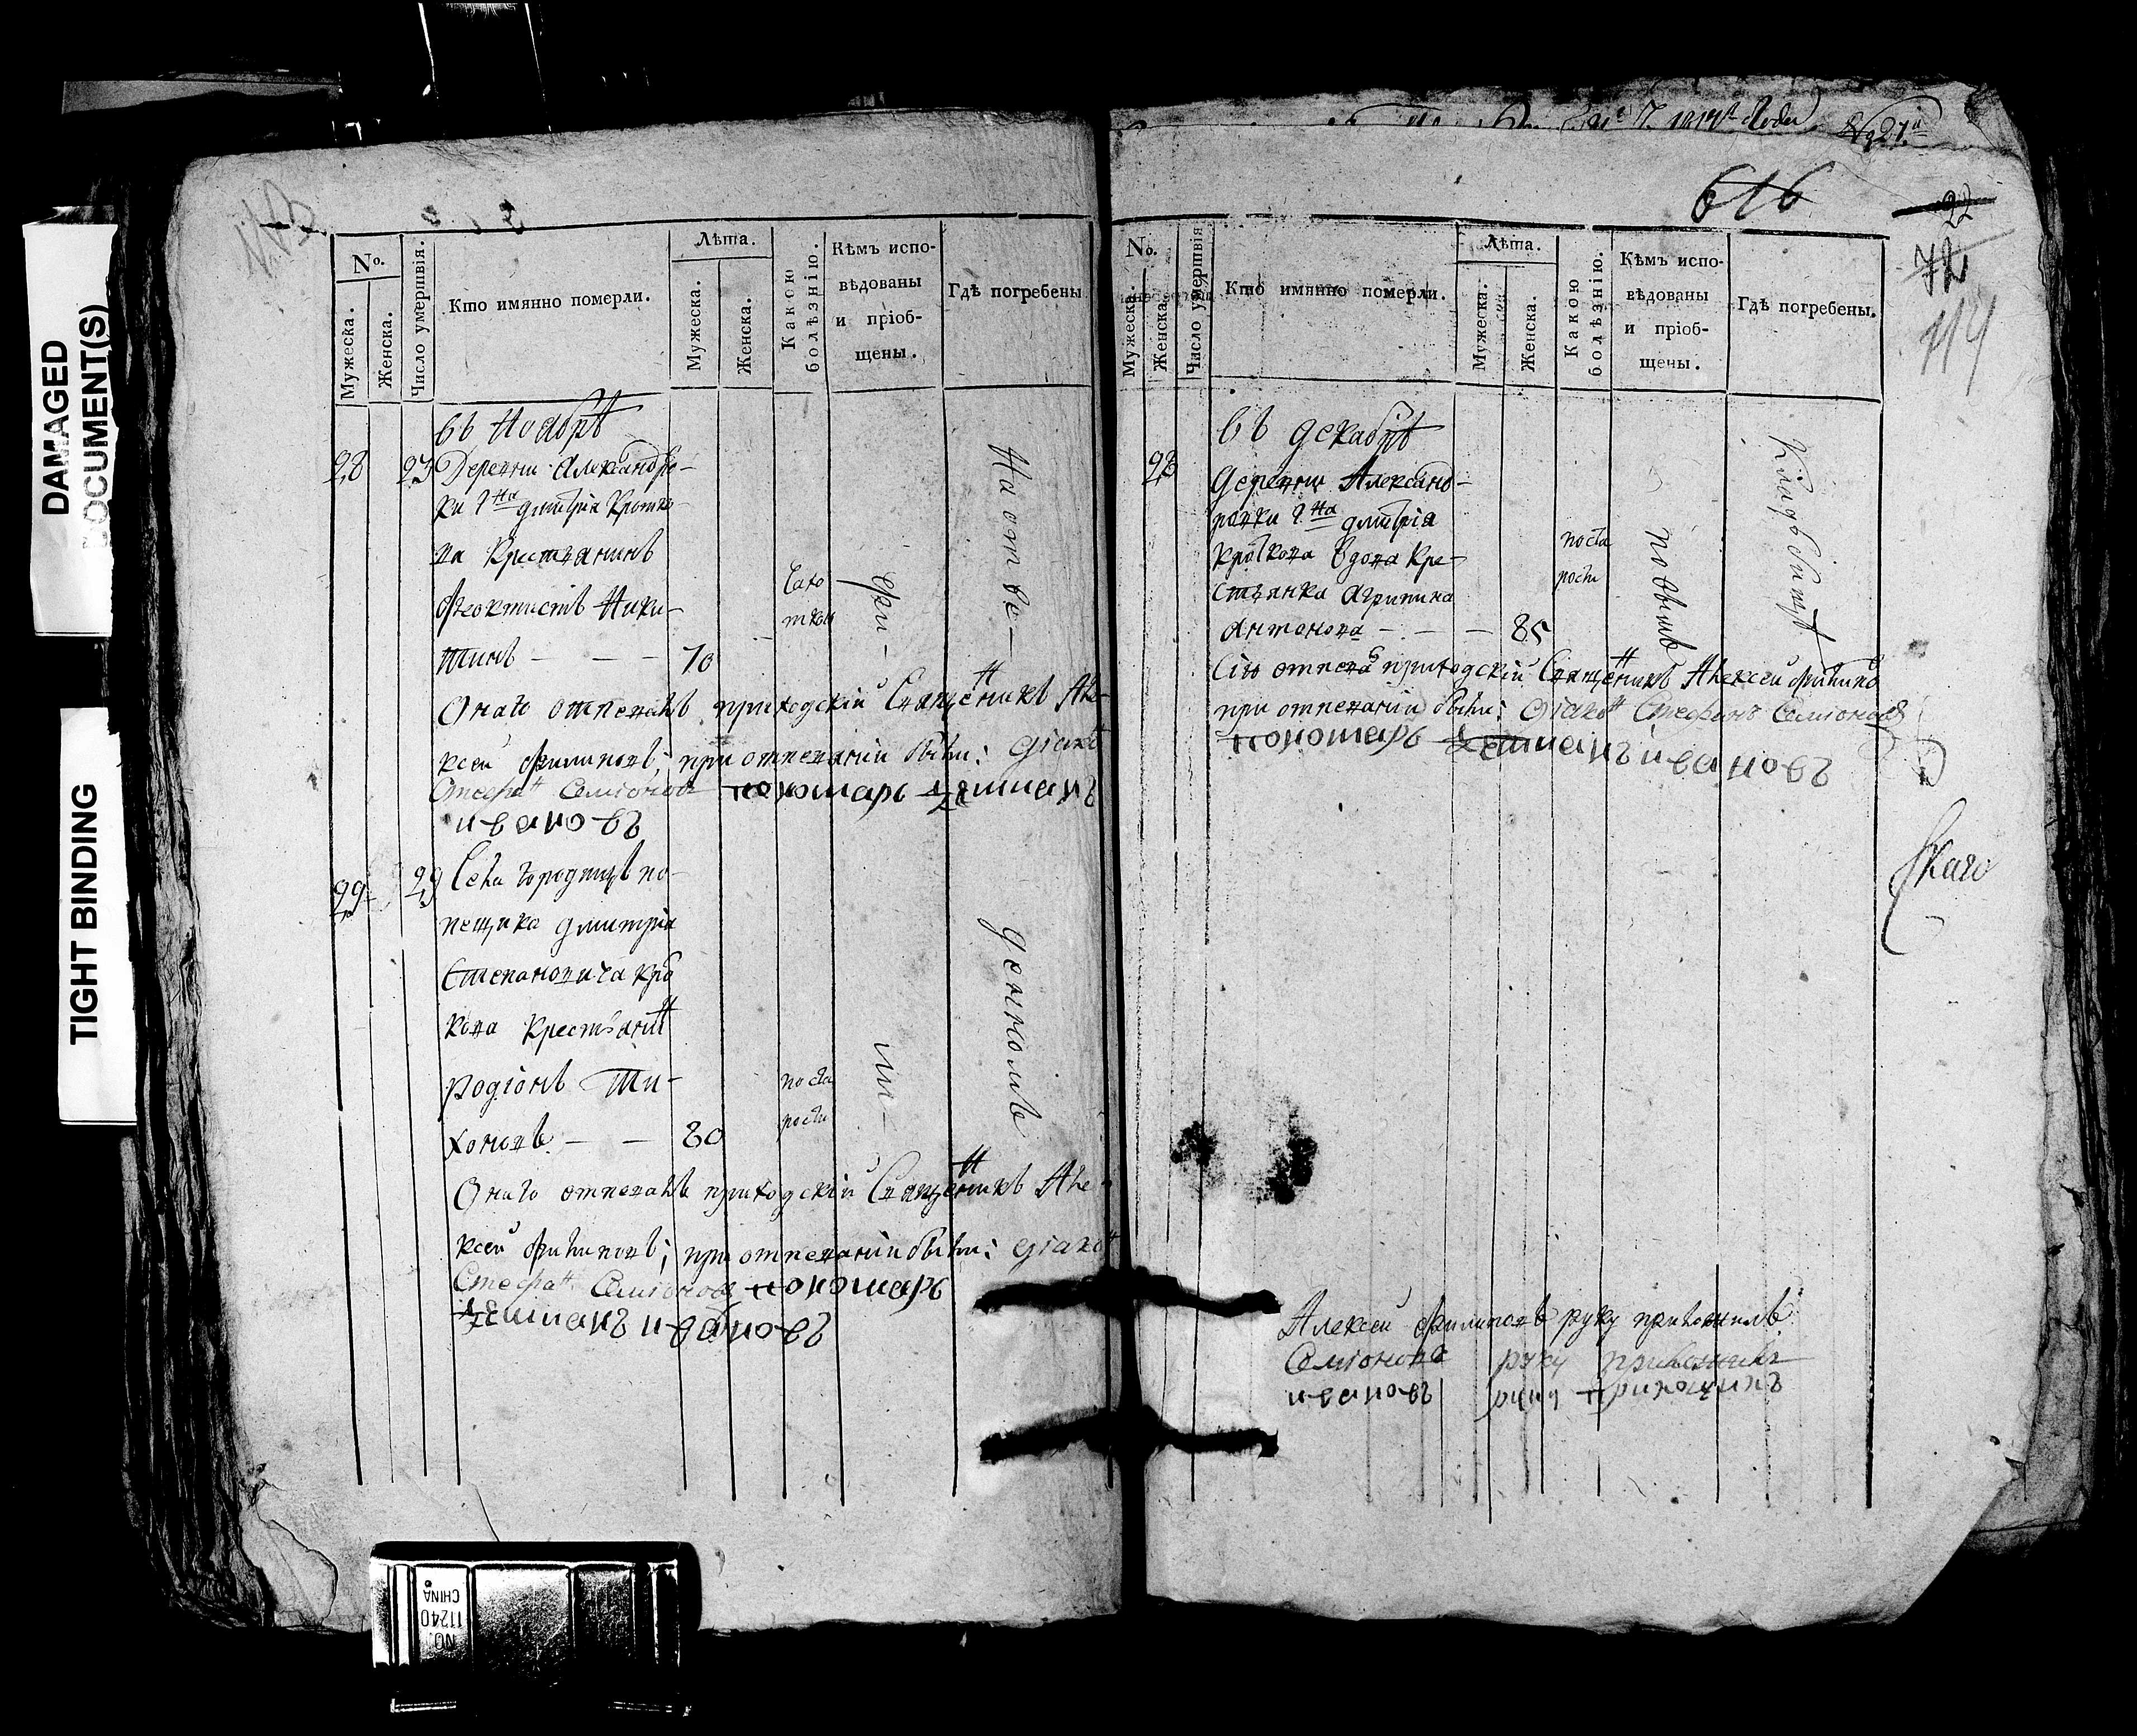 DAMAGED
DOCUMENT(S)
TIGHT BINDING
№.
Мужеска.
Женска.
Число умертвія.
Кто имянно померли.
Лѣта.
Мужеска.
Женска.
Какою болѣзнію.
Кѣмъ испо-
вѣдованы
и пріоб-
щены.
Гдѣ погребены
въ Ноябрѣ
28 23 Деревни Александро-
ки г-на Дмитрія Кротко-
ва Крестьянинъ
Феоктистъ Ники-
тинъ — — — 70
чахо
ткою
Онаго отпевалъ приходскій Священникъ Але-
ксей Филиповъ; при отпеваніи были: діяконъ
Стефанъ Семіоновъ пономарь
ивановъ
29 29 Села городищъ по-
мещика Дмитрія
Степановича Кро
кова Крестьянинъ
Родіонъ Ти-
хоновъ — — 80
поста
рости
На отве-
денномъ
Онаго отпевалъ приходскій Священникъ Але-
ксей Филиповъ; при отпеваніи были: діяконъ
Стефанъ Семіоновъ пономарь
ивановъ
616
22
72
114
№.
Мужеска.
Женска.
Число умертвія
Кто имянно померли.
Лѣта.
Мужеска.
Женска.
Какою болѣзнію.
Кѣмъ испо-
вѣдованы
и пріоб-
щены.
Гдѣ погребены.
въ декабрѣ
деревни Александ-
ровки г-на Дмитрія
Кроткова вдова Кре-
стьянка Агрипина
Антонова — — — 85
поста
рости
Кладбищѣ
Сію отпевалъ приходскій Священникъ Алексей Филиповъ
при отпеваніи были: діяконъ Стефанъ Семіоновъ
пономарь ивановъ
скаго
Алексей Филиповъ руку приложилъ
Семіоновъ руку приложилъ
ивановъ руку приложилъ
NO.
11240
CHINA